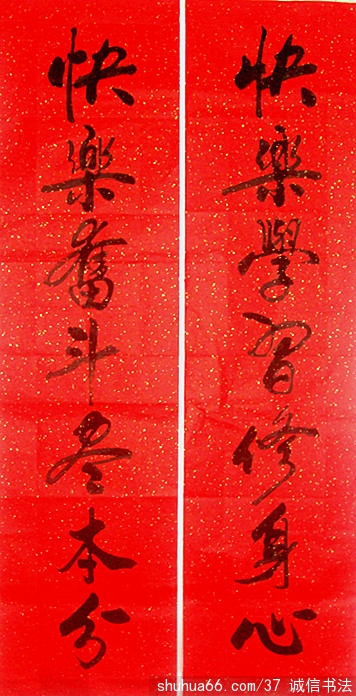 快樂學習修身心
快樂奮斗尽本分
shuhua66.com/37 诚信书法